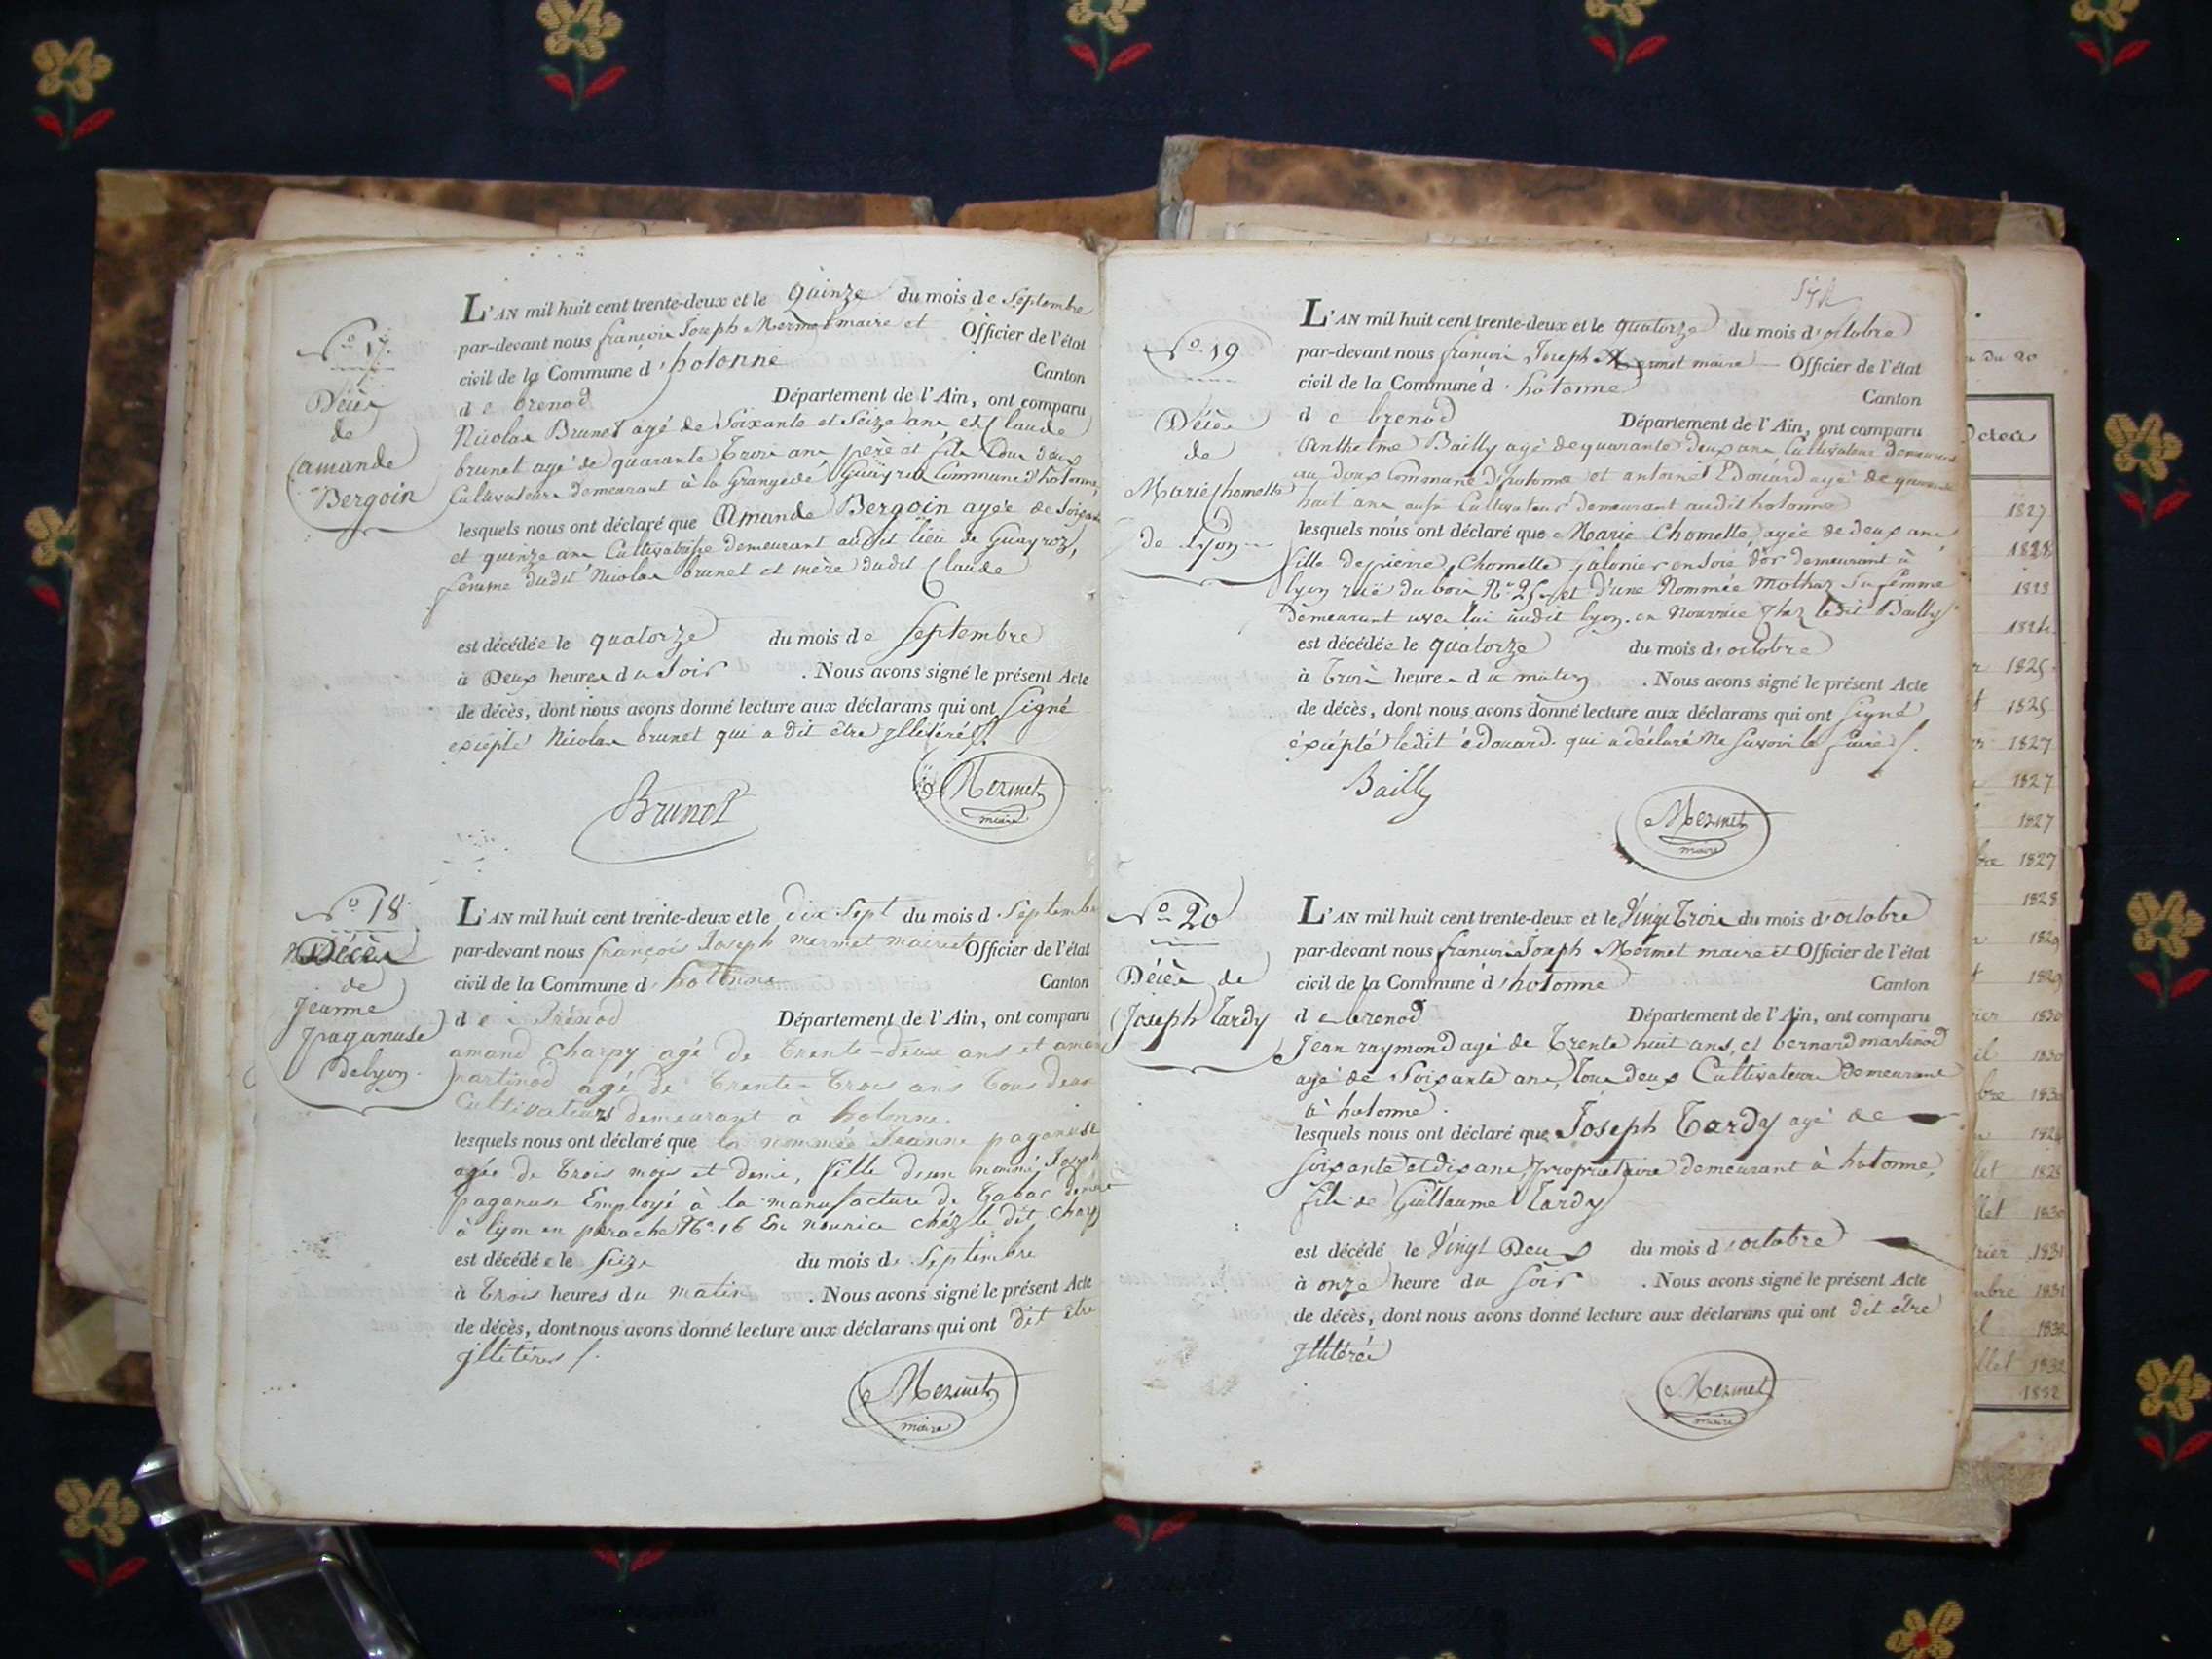 N.o 17.
Décès
de
amande
Bergoin
L'AN mil huit cent trente-deux et le quinze du mois de Septembre
par-devant nous françois Joseph Mermet maire et Officier de l'état
civil de la Commune d'hotonne Canton
de brenod Département de l'Ain, ont comparu
Nicolas Brunet agé de Soixante et Seize ans et Claude
brunet agé de quarante trois ans père et fils tous deux
Cultivateurs demeurant à la Grange de Guayroz Commune d'hotonne,
lesquels nous ont déclaré que amande Bergoin agée de Soixante
et quinze ans Cultivatrice demeurant audit lieu de Guayroz,
femme dudit Nicolas brunet et mère dudit Claude
est décédée le quatorze du mois de Septembre
à Deux heures du Soir . Nous avons signé le présent Acte
de décès, dont nous avons donné lecture aux déclarans qui ont Signé
excépté Nicolas brunet qui a dit être illitéré /.
Brunet
Mermet
maire
N.o 18.
Décès
de
Jeanne
paganuse
de lyon.
L'AN mil huit cent trente-deux et le dix Sept du mois d Septembre
par-devant nous françois Joseph mermet maire et Officier de l'état
civil de la Commune d'hotonne Canton
de Brénod Département de l'Ain, ont comparu
amand Charpy agé de trente-deux ans et aman
martinod agé de trente-trois ans tous deux
Cultivateurs demeurant à hotonne.
lesquels nous ont déclaré que la nommée Jeanne paganuse
agée de trois mois et demi, fille d'un nommé Joseph
paganuse Employé à la manufacture de tabac
à lyon en perache N.o 16 En nourrice chéz le dit Charpy
est décédée le Seize du mois de Septembre
à trois heures du matin . Nous avons signé le présent Acte
de décès, dont nous avons donné lecture aux déclarans qui ont dit être
illitérés /.
Mermet
maire
N.o 19
Décès
de
Marie Chomette
de Lyon
L'AN mil huit cent trente-deux et le quatorze du mois d'octobre
par-devant nous françois Joseph Mermet maire Officier de l'état
civil de la Commune d'hotonne Canton
de brenod Département de l'Ain, ont comparu
Anthelme Bailly agé de quarante deux ans Cultivateur demeurant
au doux Commune d'hotonne et antoine Edouard agé de quarante
huit ans aussi Cultivateur demeurant audit hotonne
lesquels nous ont déclaré que Marie Chomette agée de deux ans
fille de pierre Chomette galonier en Soie d'or demeurant à
lyon ruë du bois N.o 25 et d'une Nommée Mothaz Sa femme
demeurant avec lui audit lyon. en Nourrice Chez ledit Bailly
est décédée le quatorze du mois d'octobre
à trois heures du matin . Nous avons signé le présent Acte
de décès, dont nous avons donné lecture aux déclarans qui ont Signé
éxcépté ledit édouard. qui a déclaré ne Savoir le faire /.
Bailly
Mermet
maire
N.o 20
Décès de
Joseph Tardy
L'AN mil huit cent trente-deux et le Vingt trois du mois d'octobre
par-devant nous françois Joseph Mermet maire et Officier de l'état
civil de la Commune d'hotonne Canton
de brenod Département de l'Ain, ont comparu
Jean raymond agé de trente huit ans, et bernard martinod
agé de Soixante ans, tous deux Cultivateurs demeurant
à hotonne.
lesquels nous ont déclaré que Joseph Tardy agé de
Soixante et dix ans propriétaire demeurant à hotonne,
fils de Guillaume Tardy
est décédé le Vingt Deux du mois d'octobre
à onze heure du Soir . Nous avons signé le présent Acte
de décès, dont nous avons donné lecture aux déclarans qui ont dit être
illitérés
Mermet
maire
du 20
1827
1828
1825
1825
1827
1827
1827
bre 1827
1828
1829
1829
1830
1830
bre 1830
1828
llet 1830
1831
mbre 1831
1832
llet 1832
1832